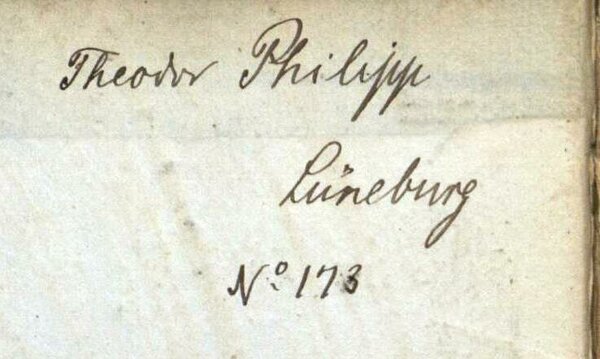 Theodor Philipp
Lüneburg
Nº 173